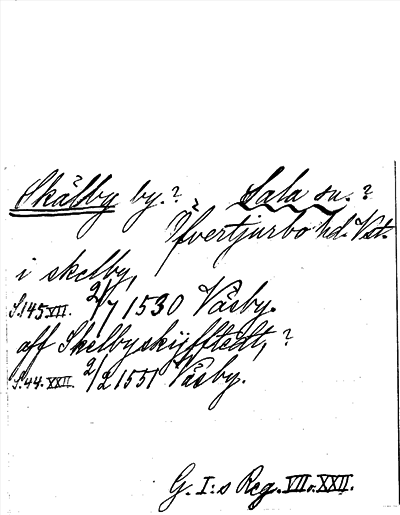 Skälby by.? Sala sn.?
Yfvertjurbo hd. Vst.
i skelby,
S.145 VII. 2/7 1530 Väsby.
aff Skelbyskijfftedt, ?
S.44. XXII. 2/2 1551 Väsby.
G. I:s Reg. VII o. XXII.